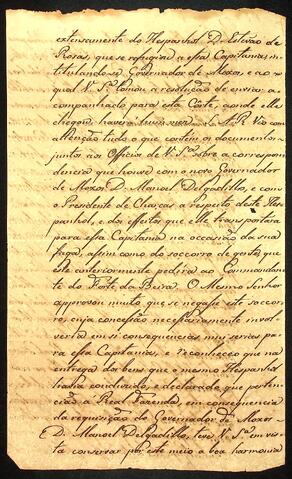 extensamente do Hespanhol D. Estevão de
Rosas, que se refugiou a essa Capitania, in-
titulando-se Governador de Moxos, e ao
qual V. S.ª tomou a resolução de enviar a-
companhado para esta Côrte, aonde elle
chegou, havera hum mez. S. A. R. Vio com
attenção tudo o que contém os documentos
juntos aos Officios de V. S.ª sobre a correspon-
dencia que houve com o novo Governador
de Moxos D. Manoel Delgadillo, e com o
Presidente de Charcas a respeito deste Hes-
panhol, e dos effeitos que elle transportára
para essa Capitania na occasião da sua
fuga, assim como do soccorro de gente, que
este anteriormente pedira ao Commandan-
te do Forte da Beira. O Mesmo Senhor
approvou muito que se negasse este soccor-
ro, cuja concessão necessariamente invol-
veria em si consequencias mui serias pa-
ra essa Capitania, e reconheceo que na
entrega dos bens que o mesmo Hespanhol
havia conduzido, e declarado que perten-
cião á Real Fazenda, em consequencia
da requisição do Governador de Moxos
D. Manoel Delgadillo, teve V. S.ª em vis-
ta conservar por este meio a boa harmonia